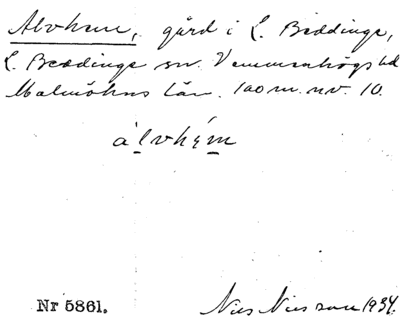 Alvhem, gård i L. Beddinge,
L. Beddinge sn. Vemmenhögs hd
Malmöhus län. 100 m. nv. 10.
àlvhém
Nr 5861. Nils Nilsson 1934.